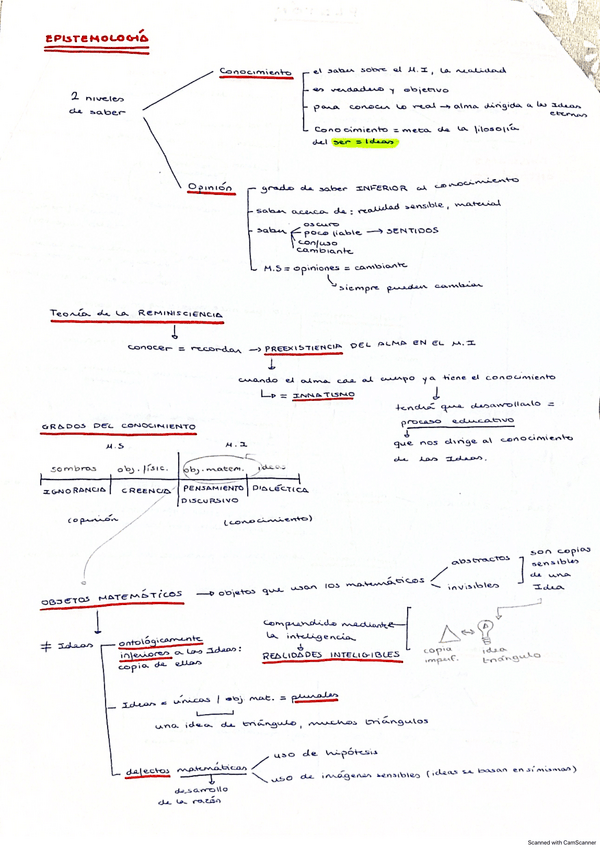 EPISTEMOLOGÍA
2 niveles
de saber
Conocimiento
el saber sobre el M.I, la realidad
es verdadero y objetivo
para conocer lo real → alma dirigida a las Ideas
eternas
Conocimiento = meta de la filosofía
del ser = Ideas
Opinión
grado de saber INFERIOR al conocimiento
saber acerca de: realidad sensible, material
saber
oscuro
poco fiable → SENTIDOS
confuso
cambiante
M.S = opiniones = cambiante
siempre pueden cambiar
Teoría de la REMINISCIENCIA
conocer = recordar → PREEXISTIENCIA DEL ALMA EN EL M.I
cuando el alma cae al cuerpo ya tiene el conocimiento
↳ = INNATISMO
tendrá que desarrollarlo =
proceso educativo
que nos dirige al conocimiento
de las Ideas.
GRADOS DEL CONOCIMIENTO
M.S M.I
sombras obj. físic. obj. matem. ideas
IGNORANCIA CREENCIA PENSAMIENTO DIALÉCTICA
DISCURSIVO
(opinión (conocimiento)
OBJETOS MATEMÁTICOS → objetos que usan los matemáticos
abstractos
invisibles
son copias
sensibles
de una
Idea
≠ Ideas
ontológicamente
inferiores a las Ideas:
copia de ellas
comprendido mediante
la inteligencia
REALIDADES INTELIGIBLES
copia
imperf.
idea
triángulo
Ideas = únicas / obj mat. = plurales
una idea de triángulo, muchos triángulos
defectos matemáticas
uso de hipótesis
uso de imágenes sensibles (ideas se basan en sí mismas)
desarrollo
de la razón
Scanned with CamScanner